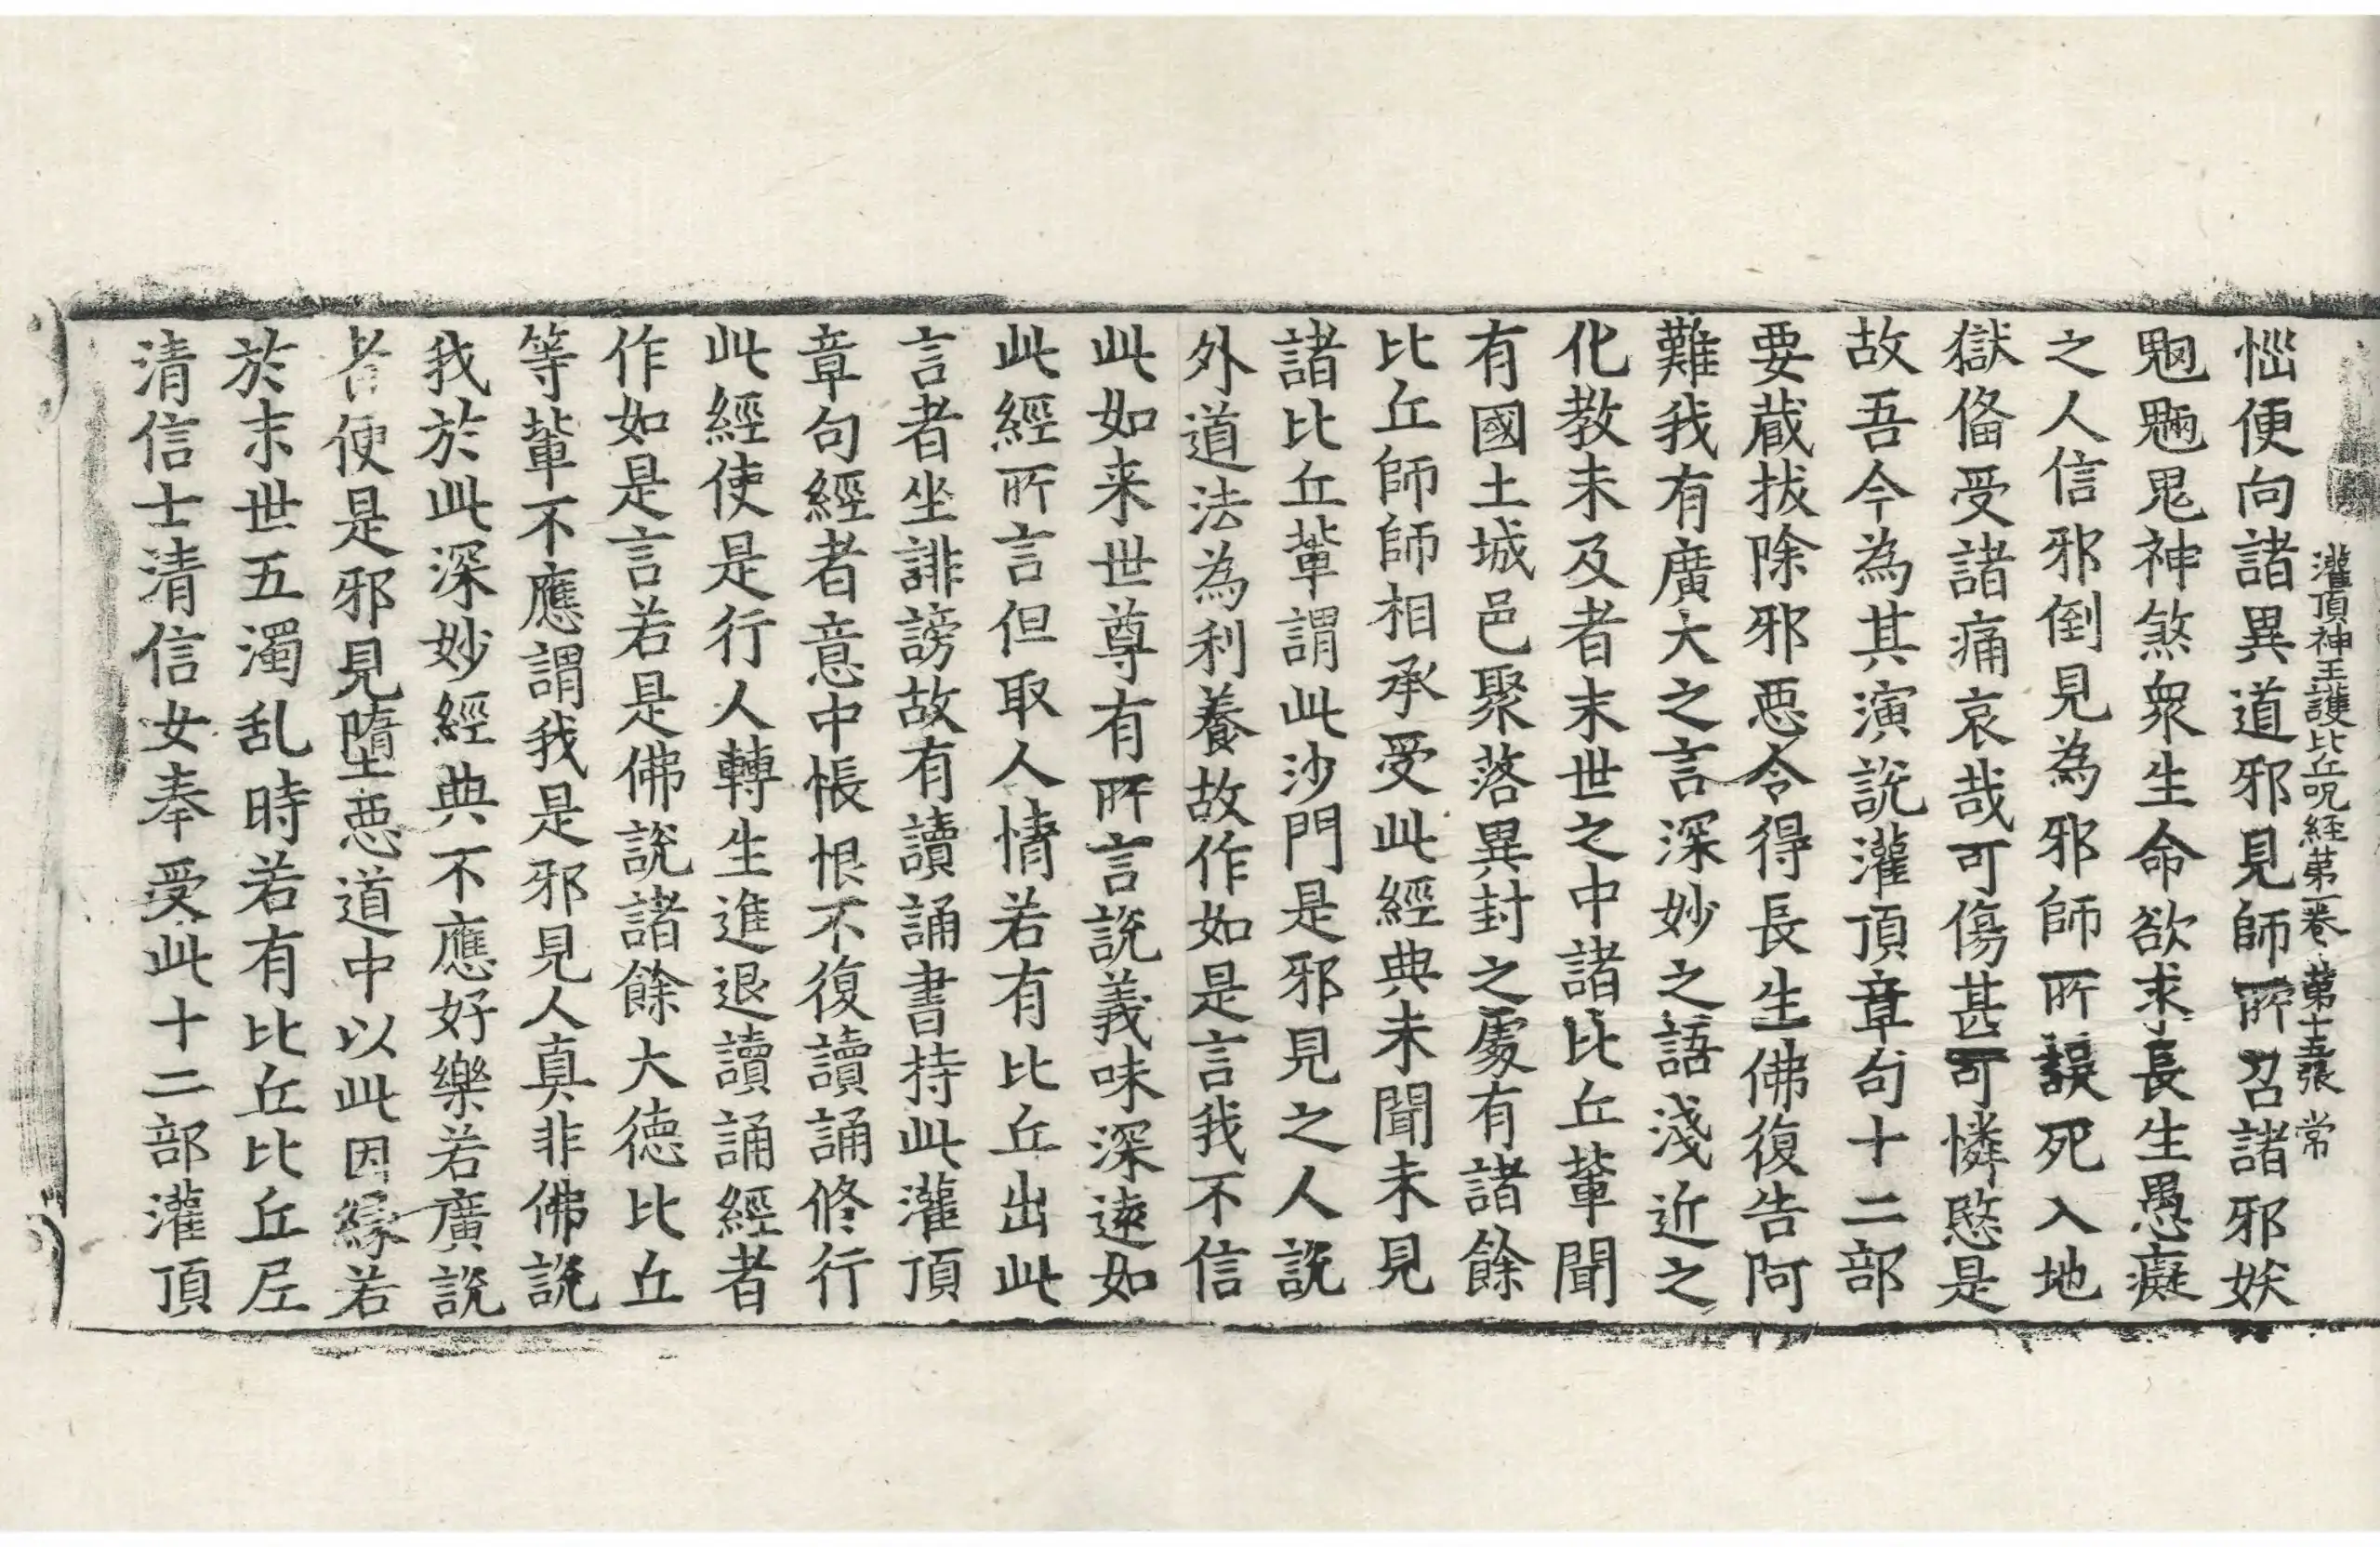 灌頂神王護比丘呪経第一巻 第十五張 常
惱便向諸異道邪見師所召諸邪妖
魍魎鬼神煞衆生命欲求長生愚癡
之人信邪倒見為邪師所誤死入地
獄俻受諸痛哀哉可傷甚可憐愍是
故吾今為其演說灌頂章句十二部
要蔵拔除邪惡令得長生佛復告阿
難我有廣大之言深妙之語淺近之
化教未及者末世之中諸比丘軰聞
有國土城邑聚落異封之處有諸餘
比丘師師相承受此經典未聞未見
諸比丘軰謂此沙門是邪見之人說
外道法為利養故作如是言我不信
此如来世尊有所言說義味深遠如
此經所言但取人情若有比丘出此
言者坐誹謗故有讀誦書持此灌頂
章句經者意中悵恨不復讀誦修行
此經使是行人轉生進退讀誦經者
作如是言若是佛說諸餘大德比丘
等軰不應謂我是邪見人真非佛說
我於此深妙經典不應好樂若廣說
者便是邪見墮惡道中以此因緣若
於末世五濁乱時若有比丘比丘尼
清信士清信女奉受此十二部灌頂